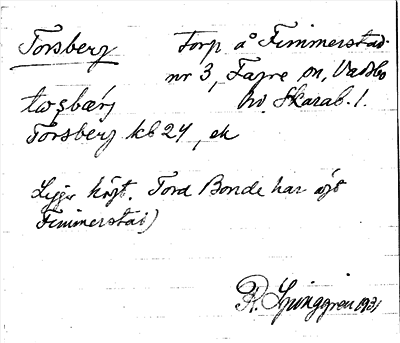 Torsberg
Torp å Fimmerstad
nr 3, Fägre sn, Vadsbo
hd, Skarab. l.
toʂbærj
Torsberg kb 24, ek
Ligger högt. Tord Bonde har ägt
Fimmerstad)
R. Ljunggren 1931